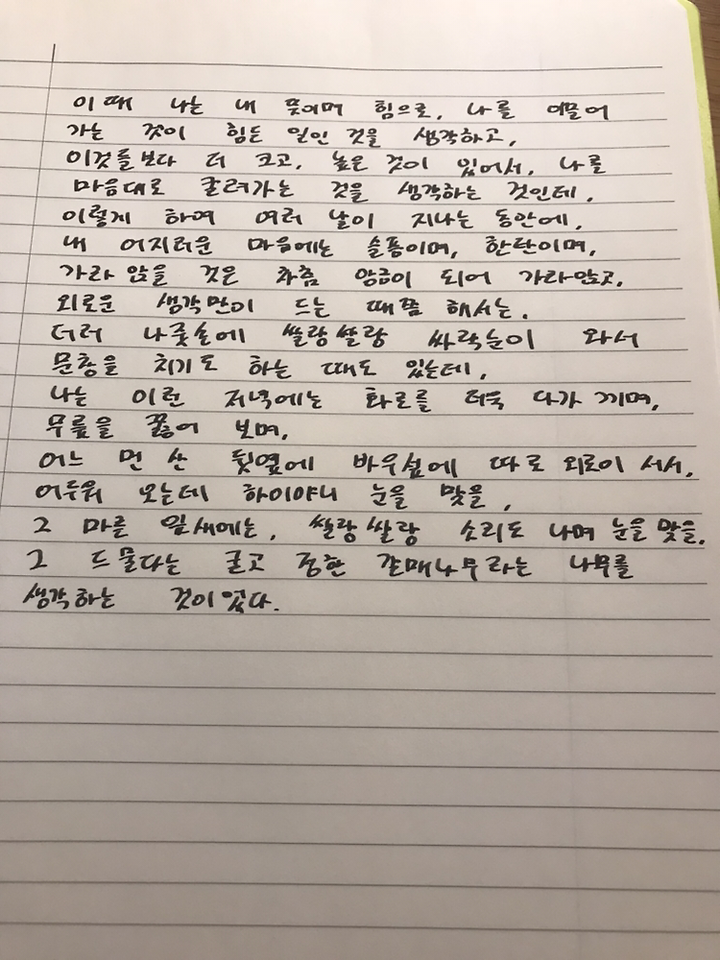 이 때 나는 내 뜻이며 힘으로, 나를 이끌어
가는 것이 힘든 일인 것을 생각하고,
이것들보다 더 크고, 높은 것이 있어서, 나를
마음대로 굴려가는 것을 생각하는 것인데,
이렇게 하여 여러 날이 지나는 동안에,
내 어지러운 마음에는 슬픔이며, 한탄이며,
가라앉을 것은 차츰 앙금이 되어 가라앉고,
외로운 생각만이 드는 때쯤 해서는,
더러 나줏손에 쌀랑쌀랑 싸락눈이 와서
문창을 치기도 하는 때도 있는데,
나는 이런 저녁에는 화로를 더욱 다가 끼며,
무릎을 꿇어 보며,
어느 먼 산 뒷옆에 바우섶에 따로 외로이 서서,
어두워 오는데 하이야니 눈을 맞을,
그 마를 잎새에는, 쌀랑쌀랑 소리도 나며 눈을 맞을,
그 드물다는 굳고 정한 갈매나무라는 나무를
생각하는 것이었다.